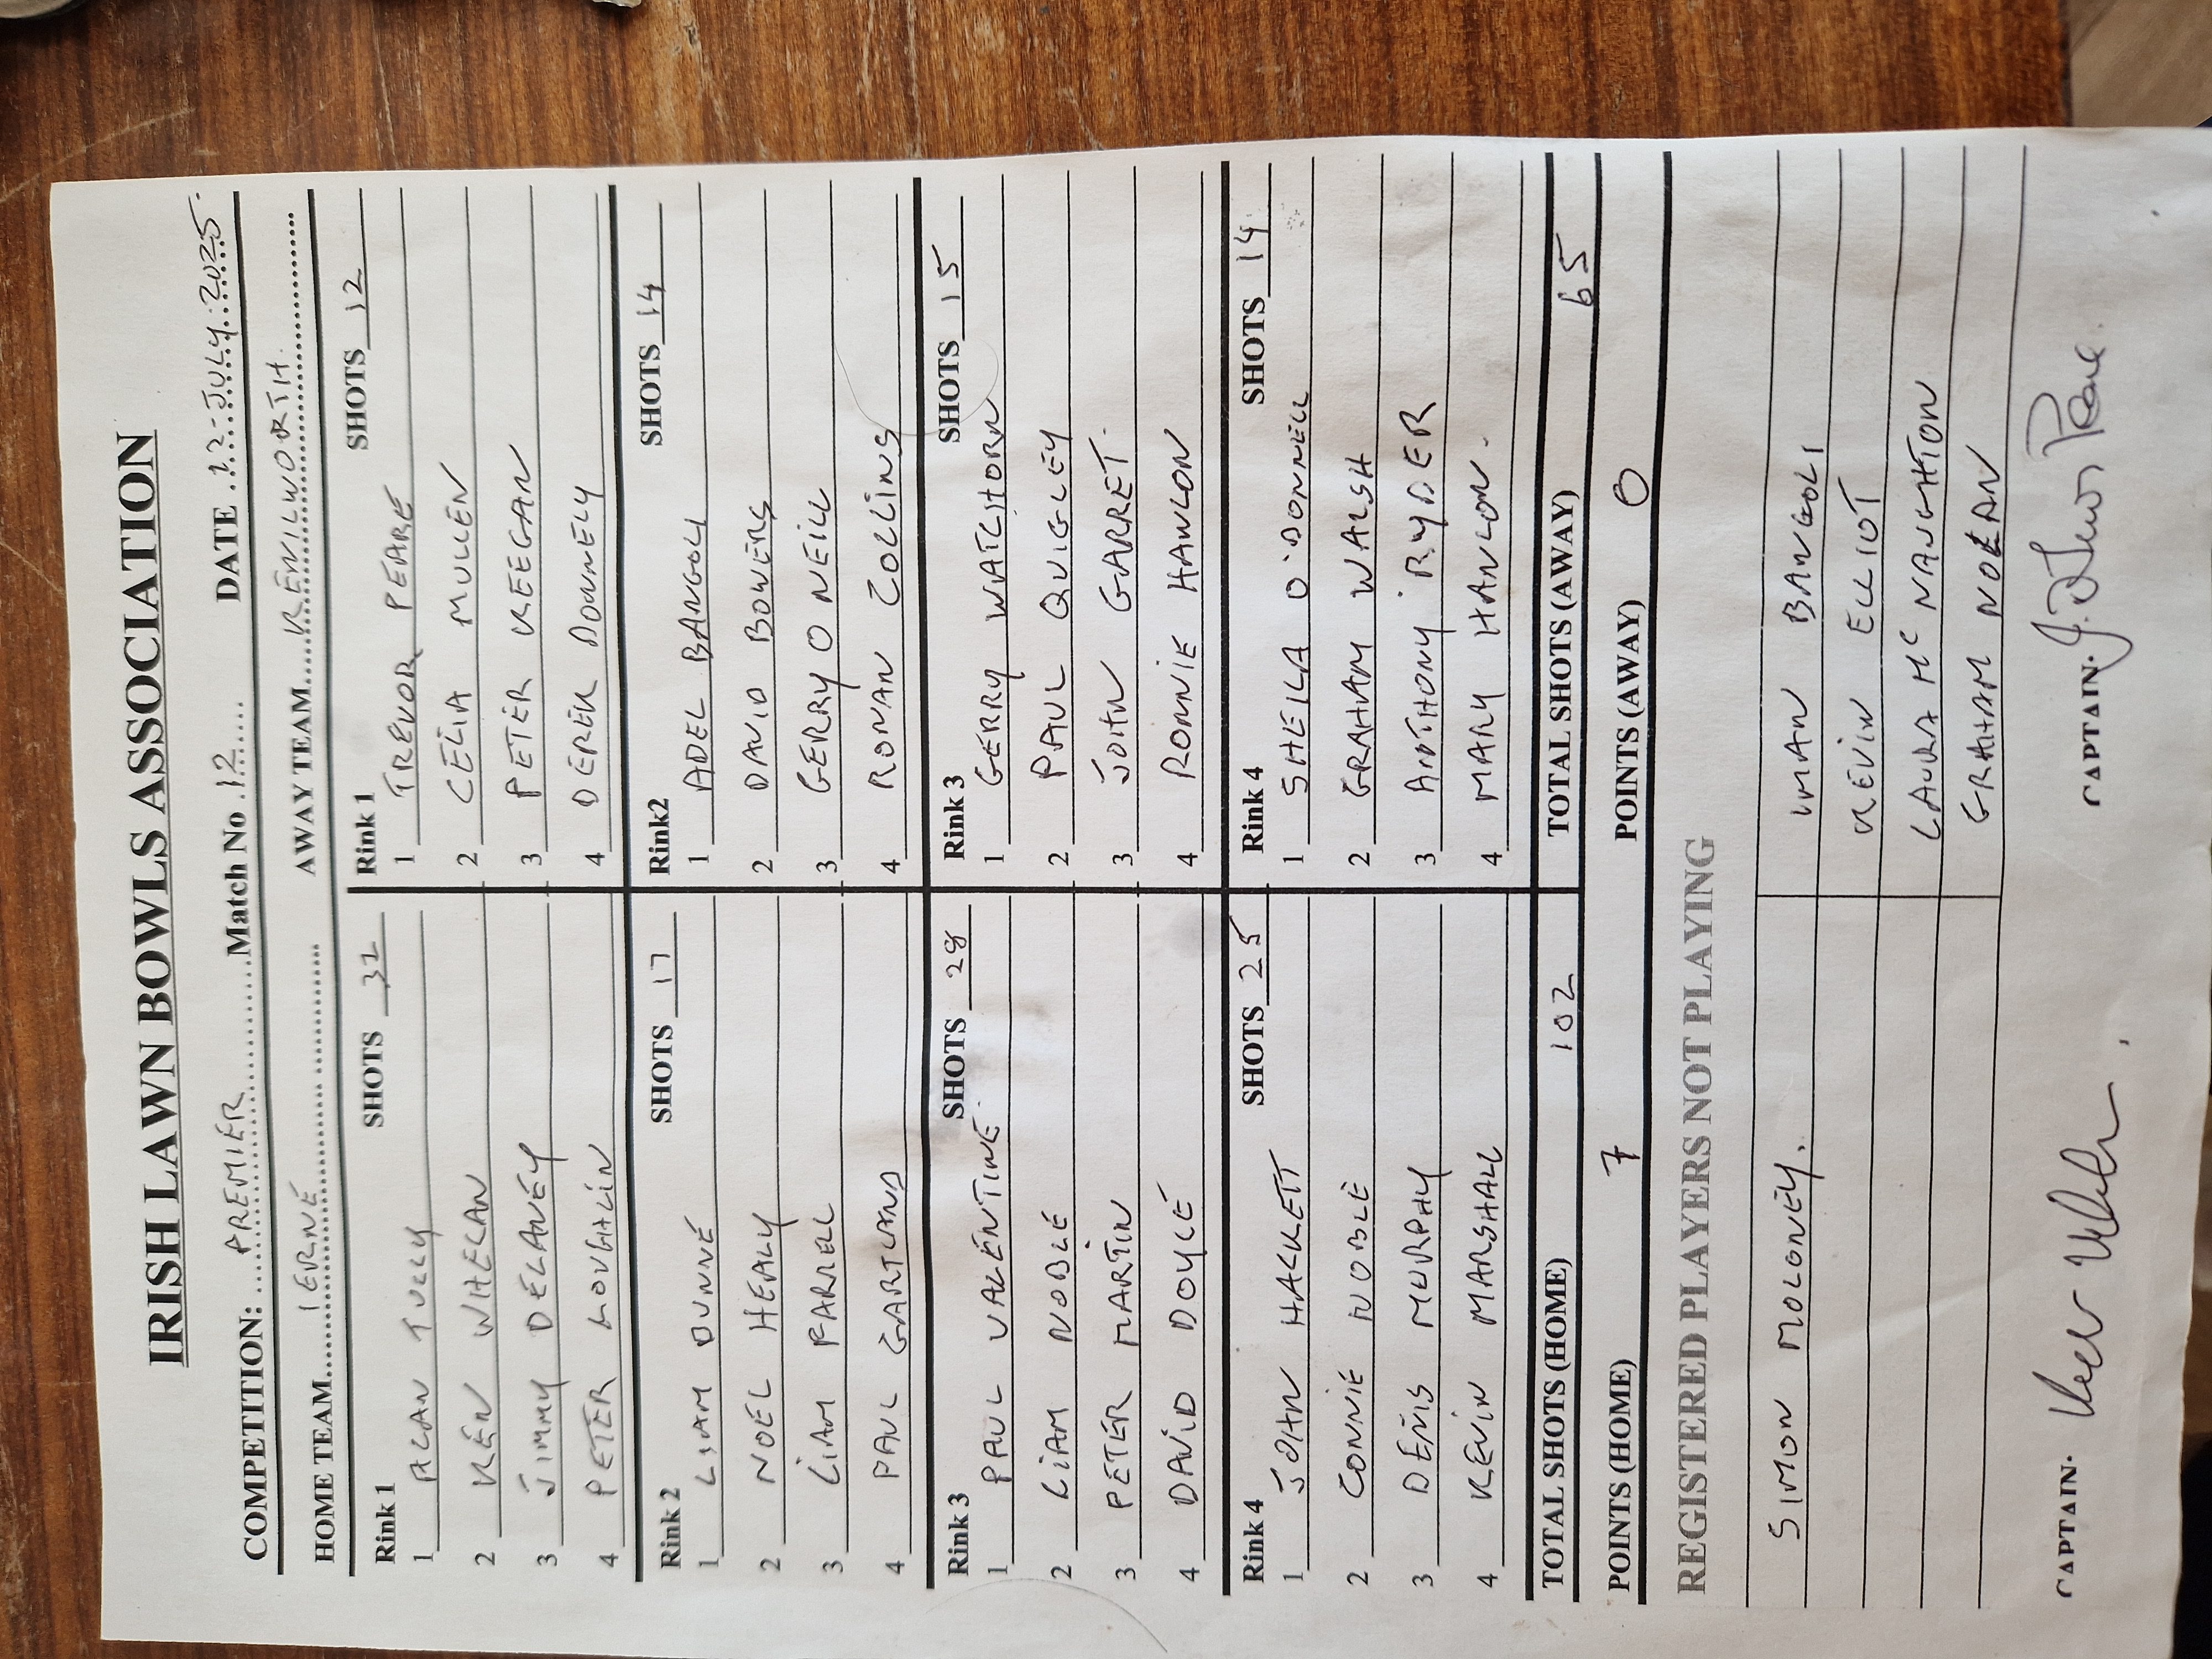 IRISH LAWN BOWLS ASSOCIATION
COMPETITION: PREMIER Match No 12 DATE 12-JULY-2025.
HOME TEAM IERNE AWAY TEAM KENILWORTH.
Rink 1 SHOTS 32 Rink 1 SHOTS 12
1 ALAN TULLY 1 TREVOR PEARE
2 KEN WHELAN 2 CELIA MULLEN
3 JIMMY DELANEY 3 PETER KEEGAN
4 PETER LOUGHLIN 4 DEREK DONNELY
Rink 2 SHOTS 17 Rink2 SHOTS 14
1 LIAM DUNNE 1 ADEL BANGOLI
2 NOEL HEALY 2 DAVID BOWERS
3 LIAM FARRELL 3 GERRY O NEILL
4 PAUL GARTLAND 4 RONAN COLLINS
Rink 3 SHOTS 28 Rink 3 SHOTS 15
1 PAUL VALENTINE. 1 GERRY WATCHORN
2 LIAM NOBLE 2 PAUL QUIGLEY
3 PETER MARTIN 3 JOHN GARRET.
4 DAVID DOYLE 4 RONNIE HANLON
Rink 4 SHOTS 25 Rink 4 SHOTS 14
1 JOHN HACKETT 1 SHEILA O'DONNELL
2 CONNIE NOBLE 2 GRAHAM WALSH
3 DENIS MURPHY 3 ANTHONY RYDER
4 KEVIN MARSHALL 4 MARY HANLON.
TOTAL SHOTS (HOME) 102 TOTAL SHOTS (AWAY) 65
POINTS (HOME) 7 POINTS (AWAY) 0
REGISTERED PLAYERS NOT PLAYING
SIMON MOLONEY. IMAN BANGOLI
KEVIN ELLIOT
LAURA Mc NAUGHTON
GRAHAM NOLAN
CAPTAIN. CAPTAIN.